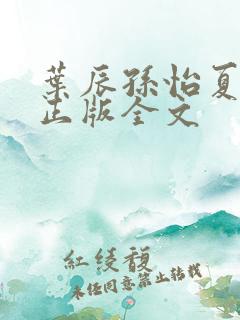 葉辰孫怡夏
正版全文
紅绫馥
未经同意禁止转载